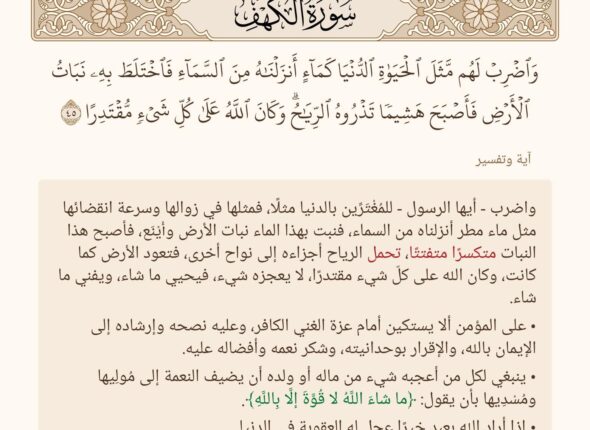 سُورَةُ الكَهْفِ
وَٱضْرِبْ لَهُم مَّثَلَ ٱلْحَيَوٰةِ ٱلدُّنْيَا كَمَآءٍ أَنزَلْنَٰهُ مِنَ ٱلسَّمَآءِ فَٱخْتَلَطَ بِهِۦ نَبَاتُ
ٱلْأَرْضِ فَأَصْبَحَ هَشِيمًا تَذْرُوهُ ٱلرِّيَٰحُ ۗ وَكَانَ ٱللَّهُ عَلَىٰ كُلِّ شَىْءٍ مُّقْتَدِرًا ٤٥
آية وتفسير
واضرب - أيها الرسول - للمُغْتَرِّين بالدنيا مثلًا، فمثلها في زوالها وسرعة انقضائها
مثل ماء مطر أنزلناه من السماء، فنبت بهذا الماء نبات الأرض وأَيْنَع، فأصبح هذا
النبات متكسرًا متفتتًا، تحمل الرياح أجزاءه إلى نواح أخرى، فتعود الأرض كما
كانت، وكان الله على كلّ شيء مقتدرًا، لا يعجزه شيء، فيحيي ما شاء، ويفني ما
شاء.
• على المؤمن ألا يستكين أمام عزة الغني الكافر، وعليه نصحه وإرشاده إلى
الإيمان بالله، والإقرار بوحدانيته، وشكر نعمه وأفضاله عليه.
• ينبغي لكل من أعجبه شيء من ماله أو ولده أن يضيف النعمة إلى مُولِيها
ومُسْدِيها بأن يقول: ﴿ما شاءَ اللَّهُ لا قُوَّةَ إلَّا بِاللَّهِ﴾.
• إذا أراد الله بعبد خيرًا عجل له العقوبة في الدنيا.